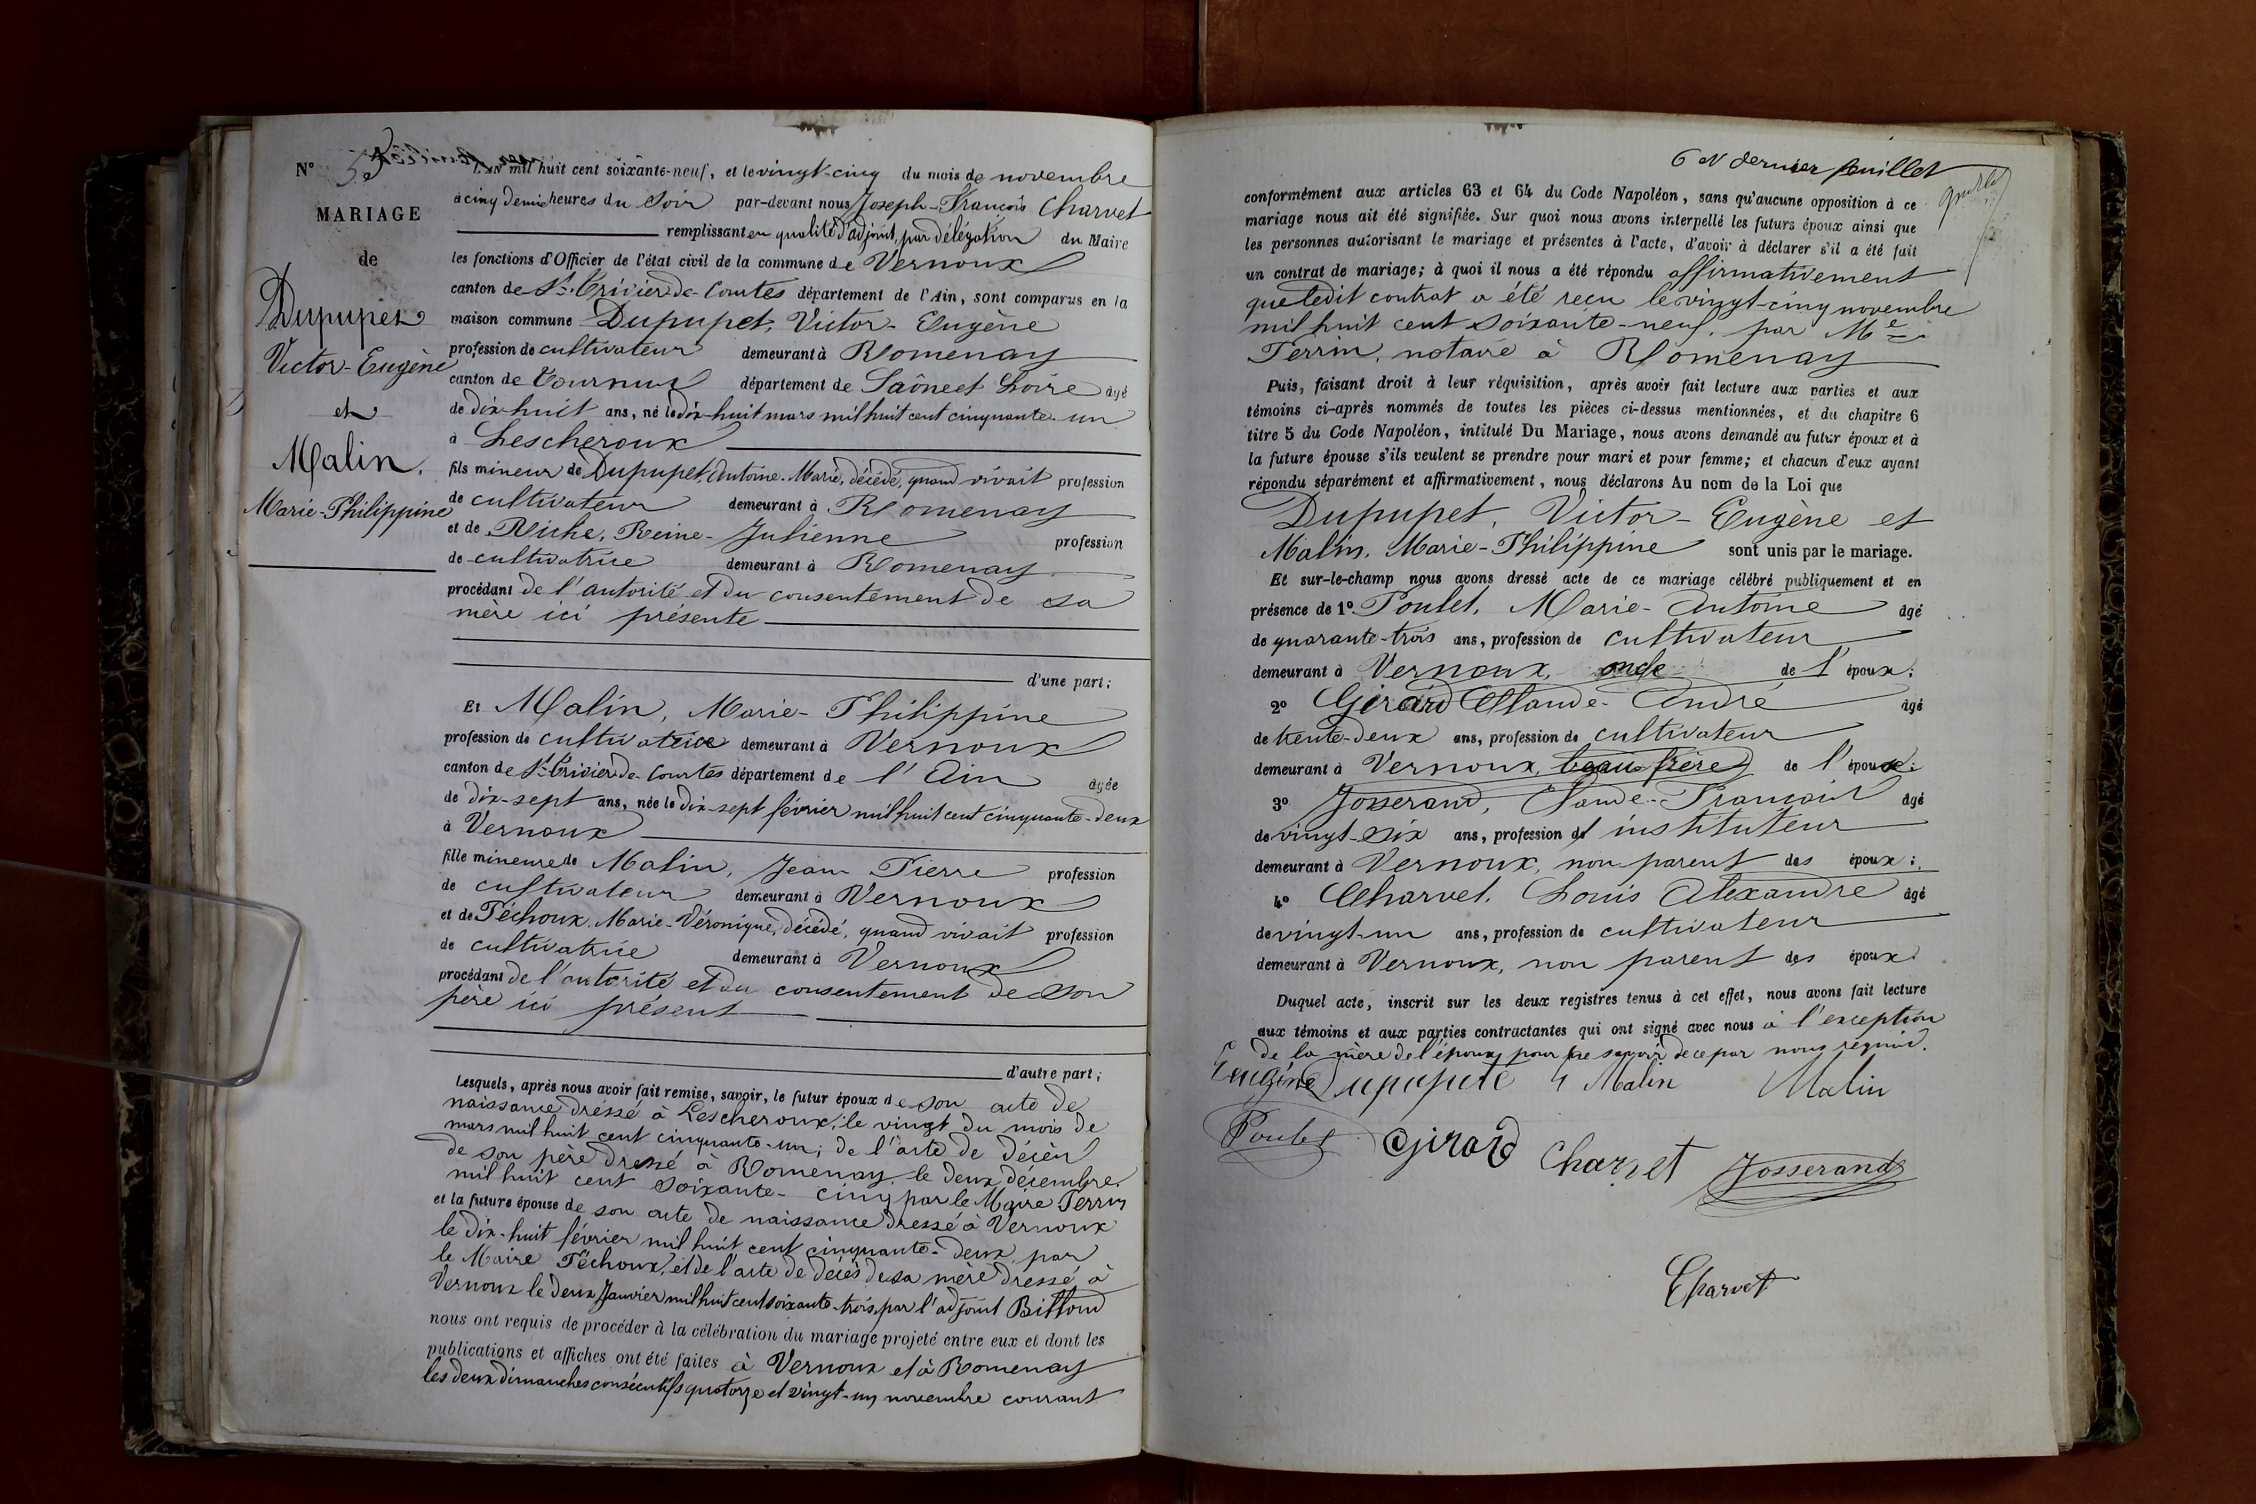 N° 5
MARIAGE
de
Dupupet
Victor-Eugène
et
Malin,
Marie-Philippine
L'AN mil huit cent soixante-neuf, et le vingt-cinq du mois de novembre
à cinq demie heures du soir par-devant nous Joseph-François Charvet
remplissant en qualité d'adjoint, par délégation du Maire
les fonctions d'Officier de l'état civil de la commune de Vernoux
canton de St-Trivier-de-Courtes département de l'Ain, sont comparus en la
maison commune Dupupet, Victor-Eugène
profession de cultivateur demeurant à Romenay
canton de Tournus département de Saône et Loire âgé
de dix-huit ans, né le dix-huit mars mil huit cent cinquante-un
à Lescheroux
fils mineur de Dupupet, Antoine-Marie, décédé, quand vivait profession
de cultivateur demeurant à Romenay
et de Riche, Reine-Julienne profession
de cultivatrice demeurant à Romenay
procédant de l'autorité et du consentement de sa
mère ici présente
d'une part;
Et Malin, Marie-Philippine
profession de cultivatrice demeurant à Vernoux
canton de St-Trivier-de-Courtes département de l'Ain âgée
de dix-sept ans, née le dix-sept février mil huit cent cinquante-deux
à Vernoux
fille mineure de Malin, Jean-Pierre profession
de cultivateur demeurant à Vernoux
et de Péchoux, Marie-Véronique, décédé, quand vivait profession
de cultivatrice demeurant à Vernoux
procédant de l'autorité et du consentement de son
père ici présent
d'autre part;
Lesquels, après nous avoir fait remise, savoir, le futur époux de son acte de
naissance dressé à Lescheroux, le vingt du mois de
mars mil huit cent cinquante-un; de l'acte de décès
de son père dressé à Romenay, le deux décembre
mil huit cent soixante-cinq par le Maire Perrin
et la future épouse de son acte de naissance dressé à Vernoux
le dix-huit février mil huit cent cinquante-deux par
le Maire Péchoux, et de l'acte de décès de sa mère dressé à
Vernoux le deux Janvier mil huit cent soixante-trois, par l'adjoint Billoud
nous ont requis de procéder à la célébration du mariage projeté entre eux et dont les
publications et affiches ont été faites à Vernoux et à Romenay
les deux dimanches consécutifs quatorze et vingt-un novembre courant
6 et dernier feuillet
conformément aux articles 63 et 64 du Code Napoléon, sans qu'aucune opposition à ce
mariage nous ait été signifiée. Sur quoi nous avons interpellé les futurs époux ainsi que
les personnes autorisant le mariage et présentes à l'acte, d'avoir à déclarer s'il a été fait
un contrat de mariage; à quoi il nous a été répondu affirmativement
que ledit contrat a été reçu le vingt-cinq novembre
mil huit cent soixante-neuf, par Me
Perrin, notaire à Romenay
Puis, faisant droit à leur réquisition, après avoir fait lecture aux parties et aux
témoins ci-après nommés de toutes les pièces ci-dessus mentionnées, et du chapitre 6
titre 5 du Code Napoléon, intitulé Du Mariage, nous avons demandé au futur époux et à
la future épouse s'ils veulent se prendre pour mari et pour femme; et chacun d'eux ayant
répondu séparément et affirmativement, nous déclarons Au nom de la Loi que
Dupupet, Victor-Eugène et
Malin, Marie-Philippine sont unis par le mariage.
Et sur-le-champ nous avons dressé acte de ce mariage célébré publiquement et en
présence de 1° Poulet, Marie-Antoine âgé
de quarante-trois ans, profession de cultivateur
demeurant à Vernoux, oncle de l'époux;
2° Girard Claude-André âgé
de trente-deux ans, profession de cultivateur
demeurant à Vernoux, beau-frère de l'époux;
3° Josserand, Claude-François âgé
de vingt-six ans, profession d'instituteur
demeurant à Vernoux, non parent des époux;
4° Charvet, Louis Alexandre âgé
de vingt-un ans, profession de cultivateur
demeurant à Vernoux, non parent des époux.
Duquel acte, inscrit sur les deux registres tenus à cet effet, nous avons fait lecture
aux témoins et aux parties contractantes qui ont signé avec nous à l'exception
de la mère de l'époux pour ne savoir de ce par nous requise.
Eugène Dupupet Malin Malin
Poulet Girard Charvet Josserand
Charvet